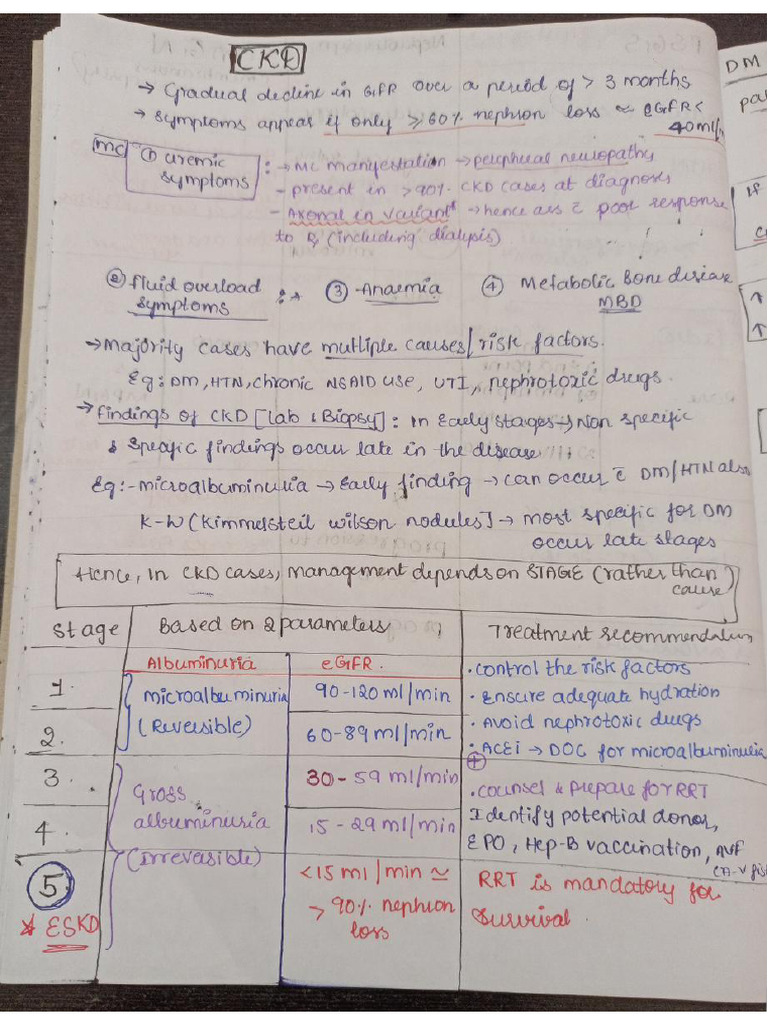 CKD
→ Gradual decline in GFR over a period of > 3 months
→ symptoms appear if only ≥60% nephron loss ≈ eGFR<
40ml/
mc ① uremic
symptoms
: → MC manifestation → peripheral neuropathy
- present in >90% CKD cases at diagnosis
- Axonal in variant → hence ass c̄ poor response
to Rx (including dialysis)
② fluid overload
symptoms :→ ③ Anaemia ④ Metabolic Bone disease
MBD
→ Majority cases have multiple causes/risk factors.
Eg: DM, HTN, chronic NSAID use, UTI, nephrotoxic drugs.
→ Findings of CKD [Lab & Biopsy]: In Early stages → Non specific
& specific findings occur late in the disease
Eg:- microalbuminuria → Early finding → can occur c̄ DM/HTN also
K-W (Kimmelsteil wilson nodules] → most specific for DM
occur late stages
Hence, in CKD cases, management depends on STAGE (rather than
cause)
Stage Based on 2 parameters Treatment recommendation
Albuminuria eGFR
1. microalbuminuria 90-120 ml/min
(Reversible)
2. 60-89 ml/min
· control the risk factors
· Ensure adequate hydration
· Avoid nephrotoxic drugs
· ACEi → DOC for microalbuminuria
+
3. Gross 30-59 ml/min
albuminuria
4. 15-29 ml/min
(irreversible)
· Counsel & prepare for RRT
Identify potential donor,
EPO, Hep-B vaccination, AVF
(A-V fis
5 <15 ml/min ≃
* ESKD > 90% nephron
loss
RRT is mandatory for
survival.
DM
pa
IF
C
↑
↑